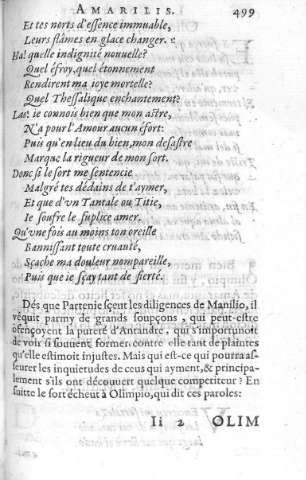 AMARILIS. 499
Et tes norts d'essence immuable,
Leurs flâmes en glace changer.
Ha! quelle indignité nouuelle?
Quel éfroy, quel étonnement
Rendirent ma ioye mortelle?
Quel Thessalique enchantement?
Las! ie connois bien que mon astre,
N'a pour l'Amour aucun éfort:
Puis qu'en lieu du bien, mon desastre
Marque la rigueur de mon sort.
Donc si le sort me sentencie
Malgré tes dédains de t'aymer,
Et que d'vn Tantale ou Titie,
Ie soufre le suplice amer.
Qu'vne fois au moins ton oreille
Bannissant toute cruauté,
Sçache ma douleur nompareille,
Puis que ie sçay tant de fierté.
Dés que Partenie sçeut les diligences de Manilio, il
vêquit parmy de grands soupçons, qui peut-estre
ofençoyent la pureté d'Antandre, qui s'importunoit
de voir si souuent former contre elle tant de plaintes
qu'elle estimoit injustes. Mais qui est-ce qui pourra as-
seurer les inquietudes de ceus qui ayment, & principa-
lement s'ils ont découuert quelque competiteur? En
suitte le sort écheut à Olimpio, qui dit ces paroles:
Ii 2 OLIM